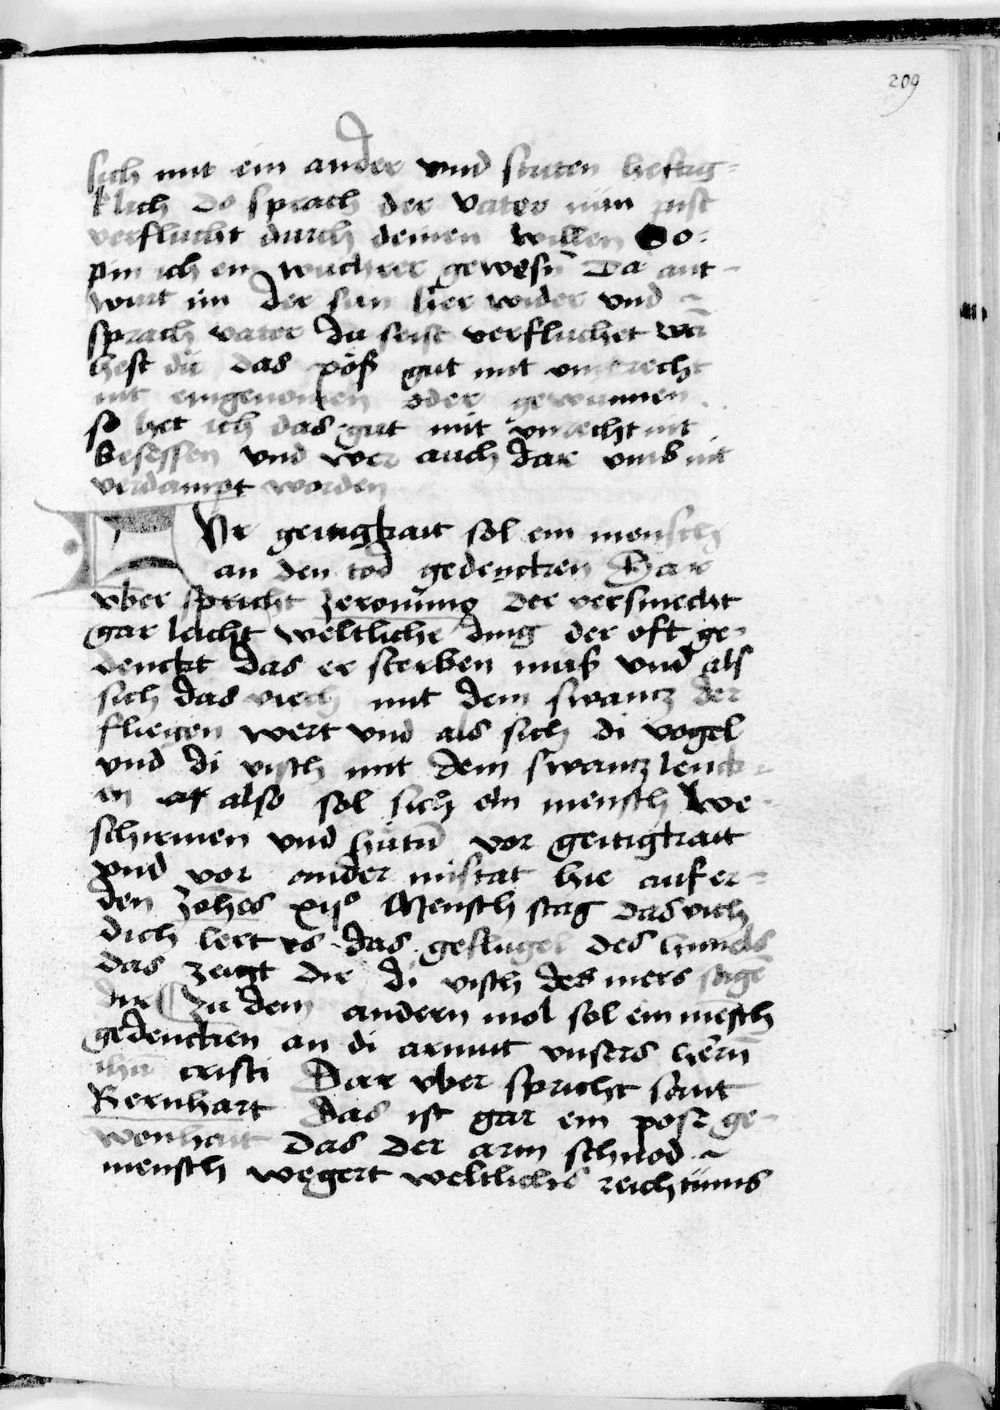 209
sich mit ein ander vnd striten heftig-
klich do sprach der vater nün pist
verflucht durch deinen willen So
pin ich ein wuchrer gewesn̄ Da ant-
wurt im der sun hier wider vnd
sprach vater du seist verfluchet wā
hest du das pöß gut mit vnrecht
nit eingenomen oder gewunnen
so het ich das gut mit vnrecht nit
besessen vnd wer auch dar vmb nit
verdampt worden
Vr geitigkait sol ein mensch
an den tod gedencken Dar
vber spricht Jeronimus der versmecht
gar leicht weltliche ding der oft ge-
denckt das er sterben müß vnd als
sich das viech mit dem swantz der
fliegen wert vnd als sich di vogel
vnd di visch mit dem swantz lenck-
en also sol sich ein mensch we-
schirmen vnd hütn̄ vor geitigkait
vnd vor ander mistat hie auf er-
den Johēs xijº Mensch frag das vich
dich lert es das geflugel des himels
das zeigt dir di visch des mers sagē
dir Zu dem andern mol sol ein mēsch
gedencken an di armut vnsers hern̄
ihū cristi Dar vber spricht sant
Bernhart Das ist gar ein pose ge-
wonheit das der arm schnod
mensch wegert weltliches reichtums